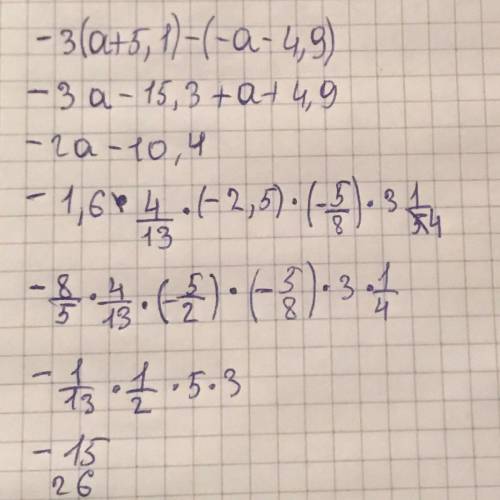 -3(a+5,1)-(-a-4,9)
-3a-15,3+a+4,9
-2a-10,4
-1,6·4/13·(-2,5)·(-5/8)·3 1/4
-8/5·4/13·(-5/2)·(-5/8)·3·1/4
-1/13·1/2·5·3
-15/26